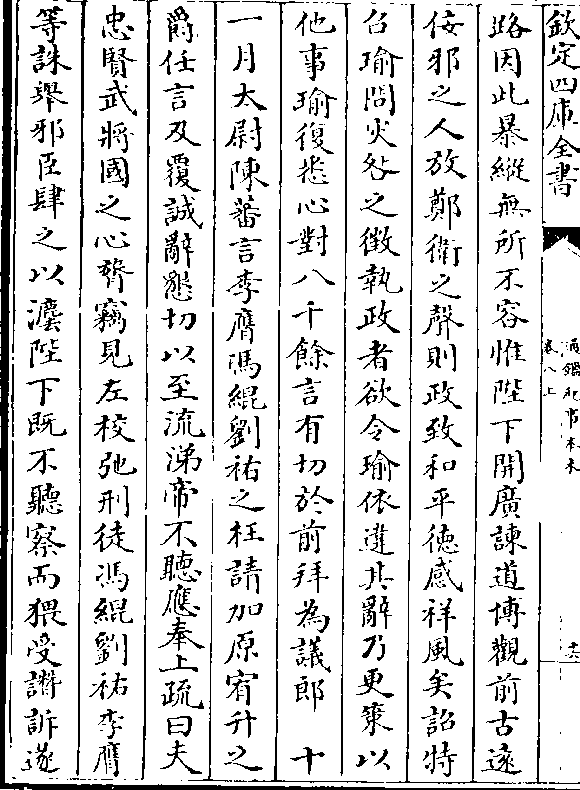 欽定四庫全書
通鑑紀事本末
卷八上
路因此暴縱無所不容惟陛下開廣諫道博觀前古遠
佞邪之人放鄭衛之聲則政致和平德感祥風矣詔特
召瑜問災咎之徵執政者欲令瑜依違其辭乃更策以
他事瑜復悉心對八千餘言有切於前拜為議郎　十
一月太尉陳蕃言李膺馮緄劉祐之枉請加原宥升之
爵任言及覆誠辭懇切以至流涕帝不聽應奉上疏曰夫
忠賢武將國之心膂竊見左校弛刑徒馮緄劉祐李膺
等誅舉邪臣肆之以灋陛下既不聽察而猥受譖訴遂